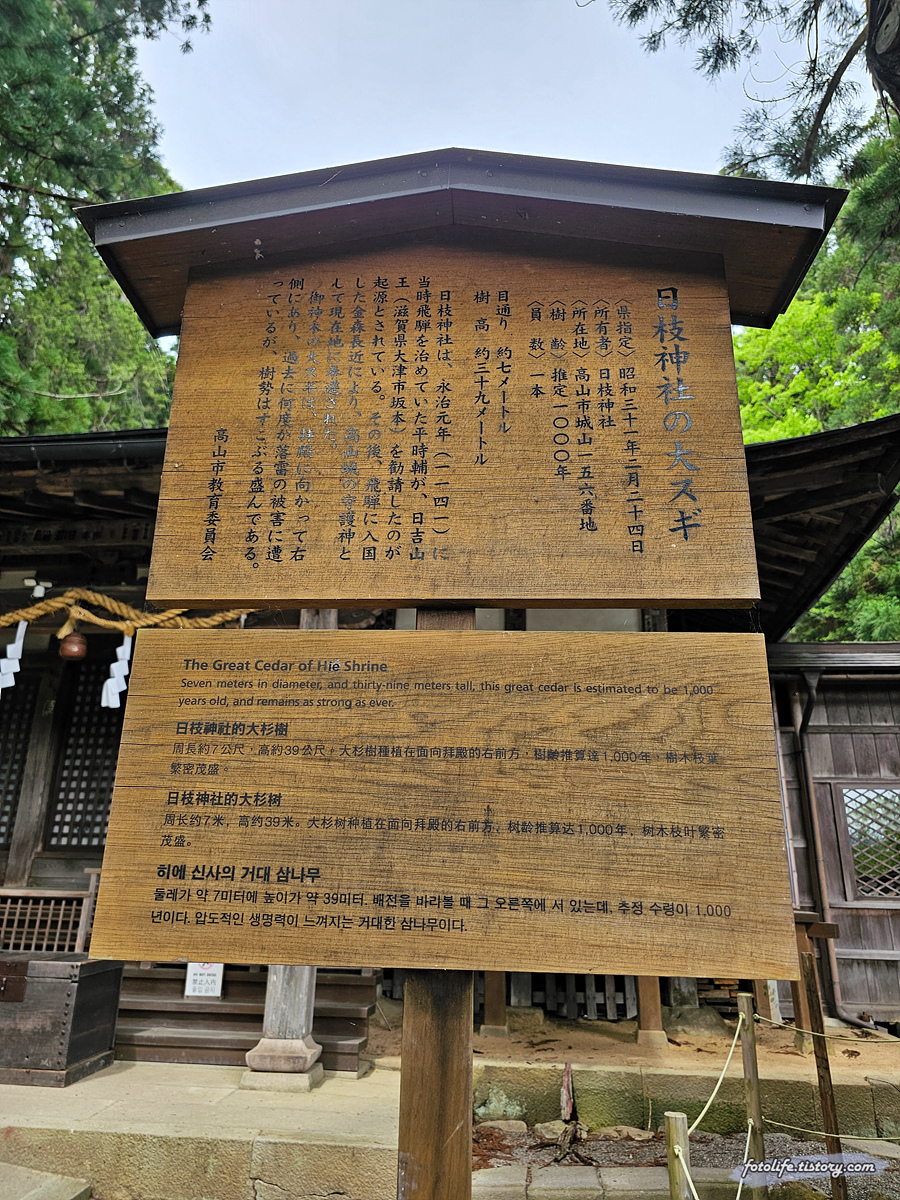 日枝神社の大スギ
〈県指定〉昭和三十一年二月二十四日
〈所有者〉日枝神社
〈所在地〉高山市城山一五六番地
〈樹　齢〉推定一〇〇〇年
〈員　数〉一本
目通り　約七メートル
樹　高　約三十九メートル
日枝神社は、永治元年（一一四一）に
当時飛騨を治めていた平時輔が、日吉山
王（滋賀県大津市坂本）を勧請したのが
起源とされている。その後、飛騨に入国
した金森長近により、高山城の守護神と
して現在地に
御神木の大スギは、拝殿に向かって右
側にあり、過去に何度か落雷の被害に遭
っているが、樹勢はすこぶる盛んである。
高山市教育委員会
The Great Cedar of Hie Shrine
Seven meters in diameter, and thirty-nine meters tall, this great cedar is estimated to be 1,000
years old, and remains as strong as ever.
日枝神社的大杉樹
周長約7公尺，高約39公尺。大杉樹種植在面向拜殿的右前方，樹齡推算達1,000年，樹木枝葉
繁密茂盛。
日枝神社的大杉树
周长约7米，高约39米。大杉树种植在面向拜殿的右前方，树龄推算达1,000年，树木枝叶繁密
茂盛。
히에 신사의 거대 삼나무
둘레가 약 7미터에 높이가 약 39미터. 배전을 바라볼 때 그 오른쪽에 서 있는데, 추정 수령이 1,000
년이다. 압도적인 생명력이 느껴지는 거대한 삼나무이다.
禁止入内
fotolife.tistory.com